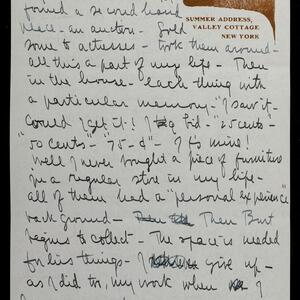 SUMMER ADDRESS,
VALLEY COTTAGE
NEW YORK
found a second hand
place - an auction - Sold
some to actresses - took them around -
all this a part of my life - Then
in the house - each thing with
a particular memory - "I saw it -
could I get it!! I bid - "25 cents -
"50 cents" - "75 - $" - It's mine!
Well I never bought a piece of furniture
in a regular store in my life -
all of them had a "personal experience"
back ground - Then Burt
begins to collect - The space is needed
for his things - I give up -
as I did to, my work when